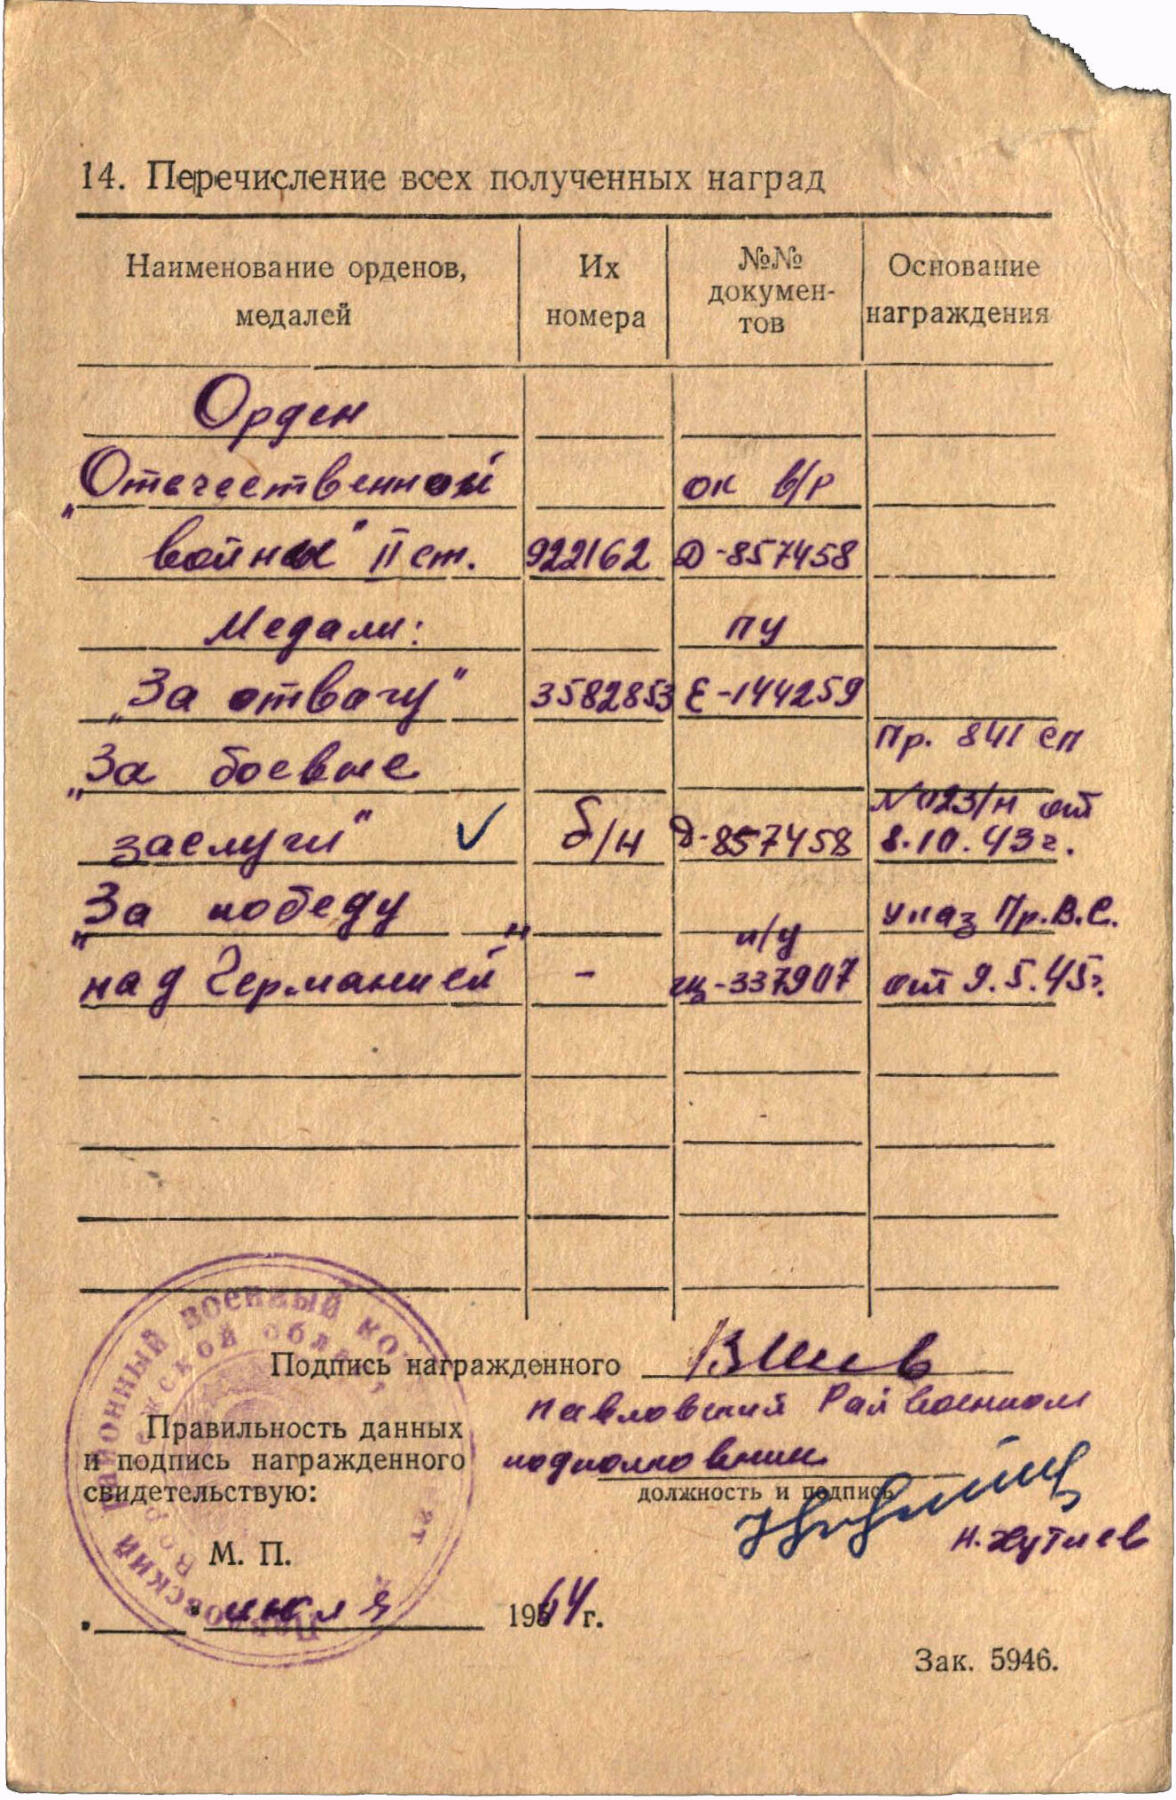 14. Перечисление всех полученных наград
Наименование орденов, медалей
Их номера
№№ докумен-тов
Основание награждения
Орден
„Отечественной ок в/р
войны" II ст. 922162 Д-857458
Медали: пу
„За отвагу" 3582853 Е-144259
Пр. 841 сп
„За боевые
№ 023/н от
заслуги" ✓ б/н Д-857458 8.10.43г.
„За победу Указ Пр.В.С.
п/у
над Германией" - -337907 от 9.5.45г.
Подпись награжденного
Павловский Райвоенком
Правильность данных
и подпись награжденного
подполковник
свидетельствую:
должность и подпись
Н. Хутиев
М. П.
июля 1964 г.
Зак. 5946.
Павловский районный военный
Воронежской области